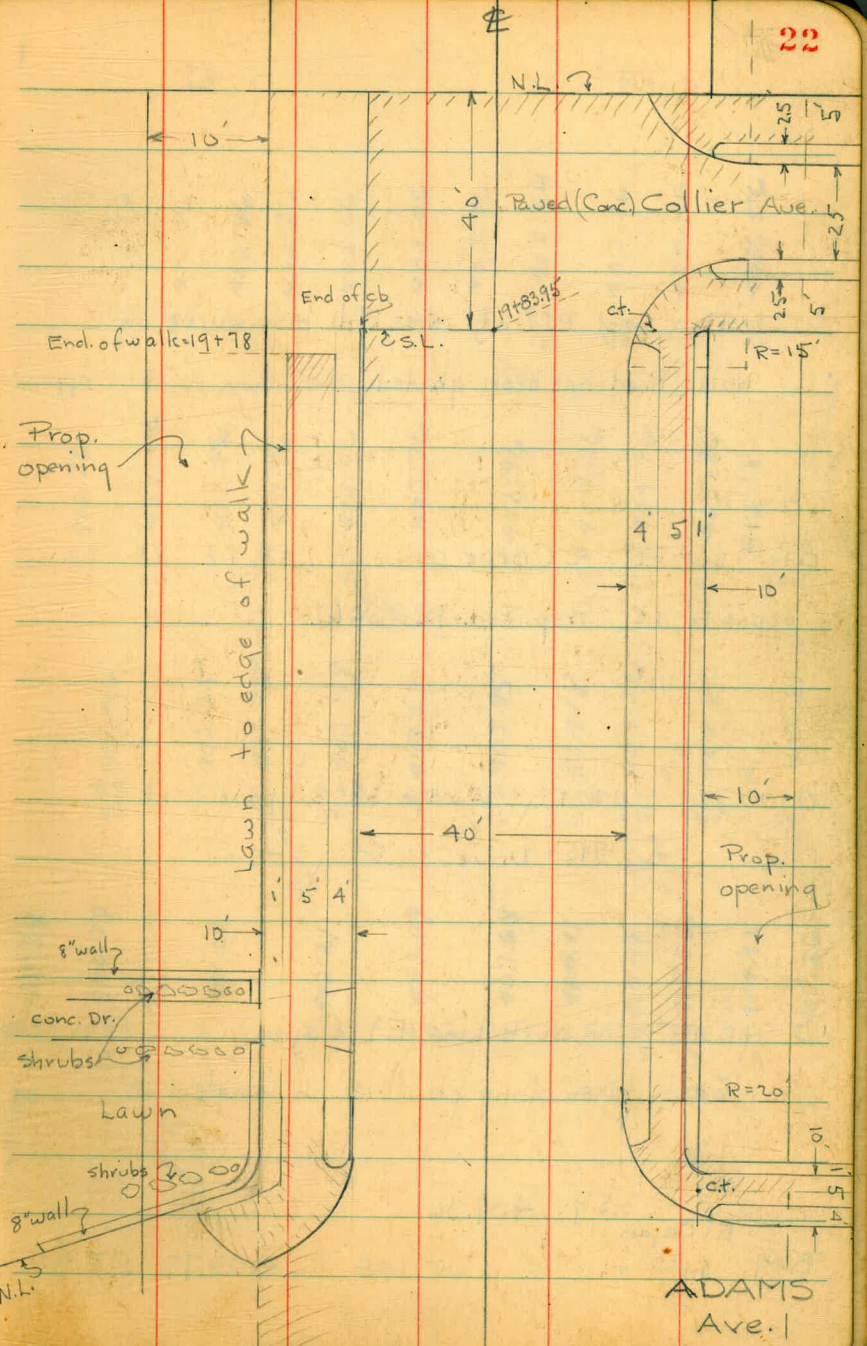 ℄
22
N.L.
2.5
5'
10'
40'
Paved (Conc.) Collier Ave.
25
End of cb
19+83.95
c.t.
2.5'
5'
End. of walk=19+78
S.L.
R=15'
Prop.
opening
Lawn to edge of walk
4' 5' 1'
10'
10'
40'
Prop.
opening
1' 5' 4'
10'
8" wall
conc. Dr.
Shrubs
Lawn
R=20'
10'
shrubs
c.t.
1
5
4
8" wall
N.L.
ADAMS
Ave.